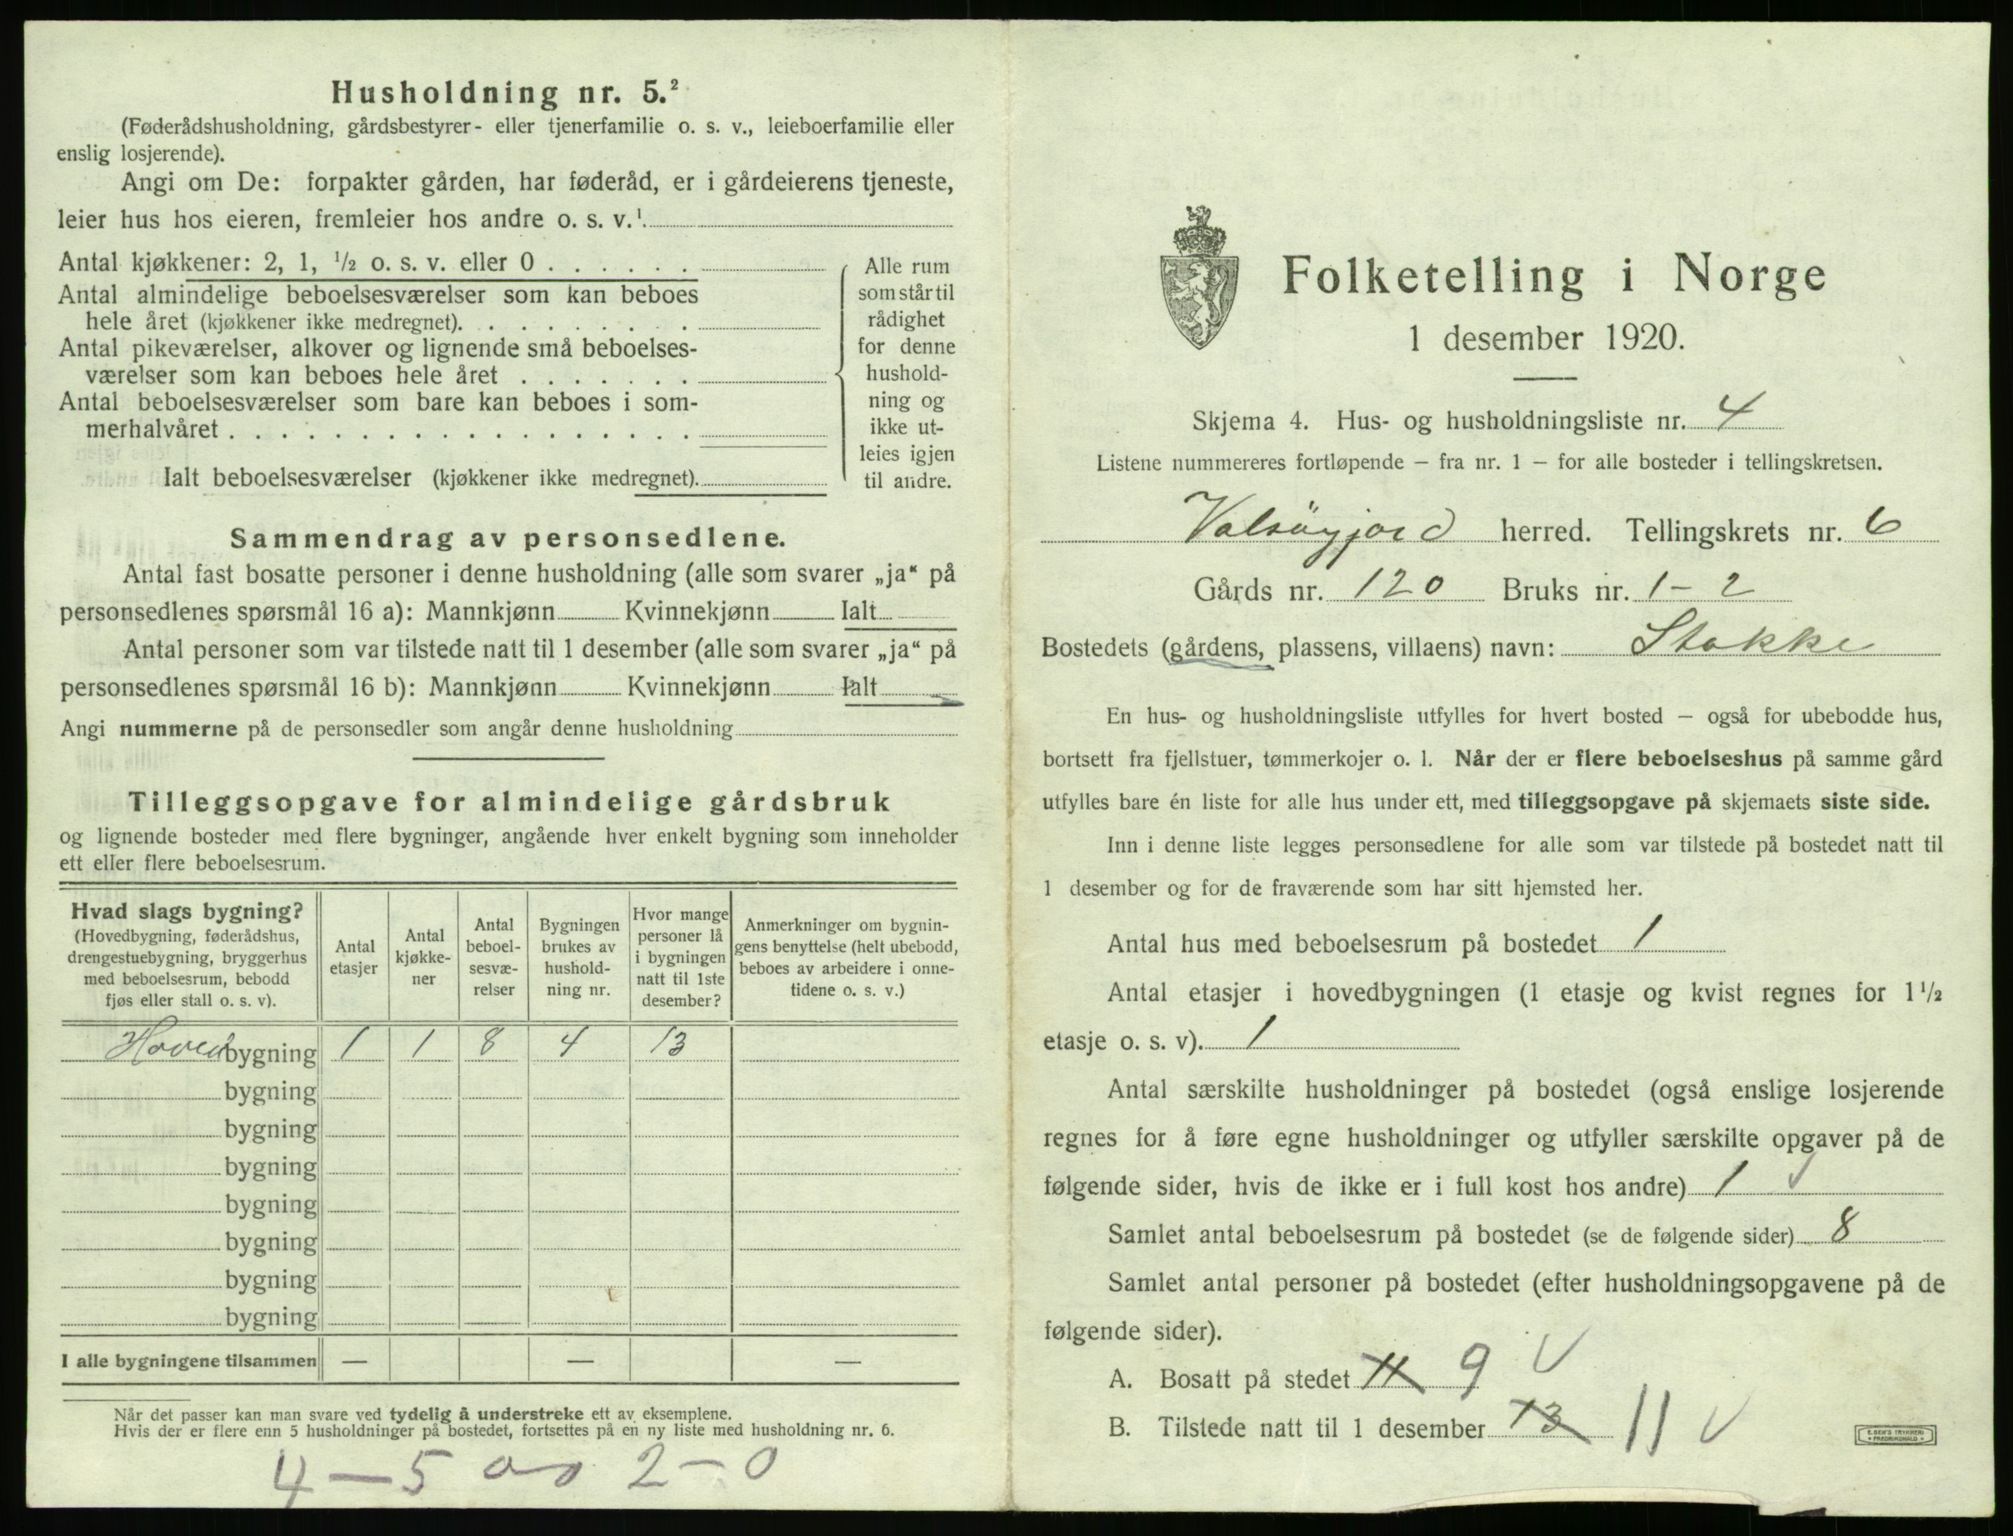 Husholdning nr. 5.²
(Føderådshusholdning, gårdsbestyrer- eller tjenerfamilie o. s. v., leieboerfamilie eller
enslig losjerende).
Angi om De: forpakter gården, har føderåd, er i gårdeierens tjeneste,
leier hus hos eieren, fremleier hos andre o. s. v.¹
Antal kjøkkener: 2, 1, ½ o. s. v. eller 0
Antal almindelige beboelsesværelser som kan beboes
hele året (kjøkkener ikke medregnet).
Antal pikeværelser, alkover og lignende små beboelses-
værelser som kan beboes hele året
Antal beboelsesværelser som bare kan beboes i som-
merhalvåret
Ialt beboelsesværelser (kjøkkener ikke medregnet).
Alle rum
som står til
rådighet
for denne
hushold-
ning og
ikke ut-
leies igjen
til andre.
Sammendrag av personsedlene.
Antal fast bosatte personer i denne husholdning (alle som svarer „ja“ på
personsedlenes spørsmål 16 a): Mannkjønn Kvinnekjønn Ialt
Antal personer som var tilstede natt til 1 desember (alle som svarer „ja“ på
personsedlenes spørsmål 16 b): Mannkjønn Kvinnekjønn Ialt
Angi nummerne på de personsedler som angår denne husholdning
Tilleggsopgave for almindelige gårdsbruk
og lignende bosteder med flere bygninger, angående hver enkelt bygning som inneholder
ett eller flere beboelsesrum.
Hvad slags bygning?
(Hovedbygning, føderådshus,
drengestuebygning, bryggerhus
med beboelsesrum, bebodd
fjøs eller stall o. s. v).
Antal
etasjer
Antal
kjøkke-
ner
Antal
beboel-
sesvæ-
relser
Bygningen
brukes av
hushold-
ning nr.
Hvor mange
personer lå
i bygningen
natt til 1ste
desember?
Anmerkninger om bygnin-
gens benyttelse (helt ubebodd,
beboes av arbeidere i onne-
tidene o. s. v.)
Hovedbygning 1 1 8 4 13
bygning
bygning
bygning
bygning
bygning
bygning
bygning
I alle bygningene tilsammen — — —
Når det passer kan man svare ved tydelig å understreke ett av eksemplene.
Hvis der er flere enn 5 husholdninger på bostedet, fortsettes på en ny liste med husholdning nr. 6.
4 – 5 2 – 0
Folketelling i Norge
1 desember 1920.
Skjema 4. Hus- og husholdningsliste nr. 4
Listene nummereres fortløpende – fra nr. 1 – for alle bosteder i tellingskretsen.
Valsøyfjord herred. Tellingskrets nr. 6
Gårds nr. 120 Bruks nr. 1-2
Bostedets (gårdens, plassens, villaens) navn: Stokke
En hus- og husholdningsliste utfylles for hvert bosted – også for ubebodde hus,
bortsett fra fjellstuer, tømmerkojer o. l. Når der er flere beboelseshus på samme gård
utfylles bare én liste for alle hus under ett, med tilleggsopgave på skjemaets siste side.
Inn i denne liste legges personsedlene for alle som var tilstede på bostedet natt til
1 desember og for de fraværende som har sitt hjemsted her.
Antal hus med beboelsesrum på bostedet 1
Antal etasjer i hovedbygningen (1 etasje og kvist regnes for 1½
etasje o. s. v). 1
Antal særskilte husholdninger på bostedet (også enslige losjerende
regnes for å føre egne husholdninger og utfyller særskilte opgaver på de
følgende sider, hvis de ikke er i full kost hos andre) 1 √
Samlet antal beboelsesrum på bostedet (se de følgende sider) 8
Samlet antal personer på bostedet (efter husholdningsopgavene på de
følgende sider).
A. Bosatt på stedet 11 9 √
B. Tilstede natt til 1 desember 13 11 √
E. SEM'S TRYKKERI
FREDRIKSHALD